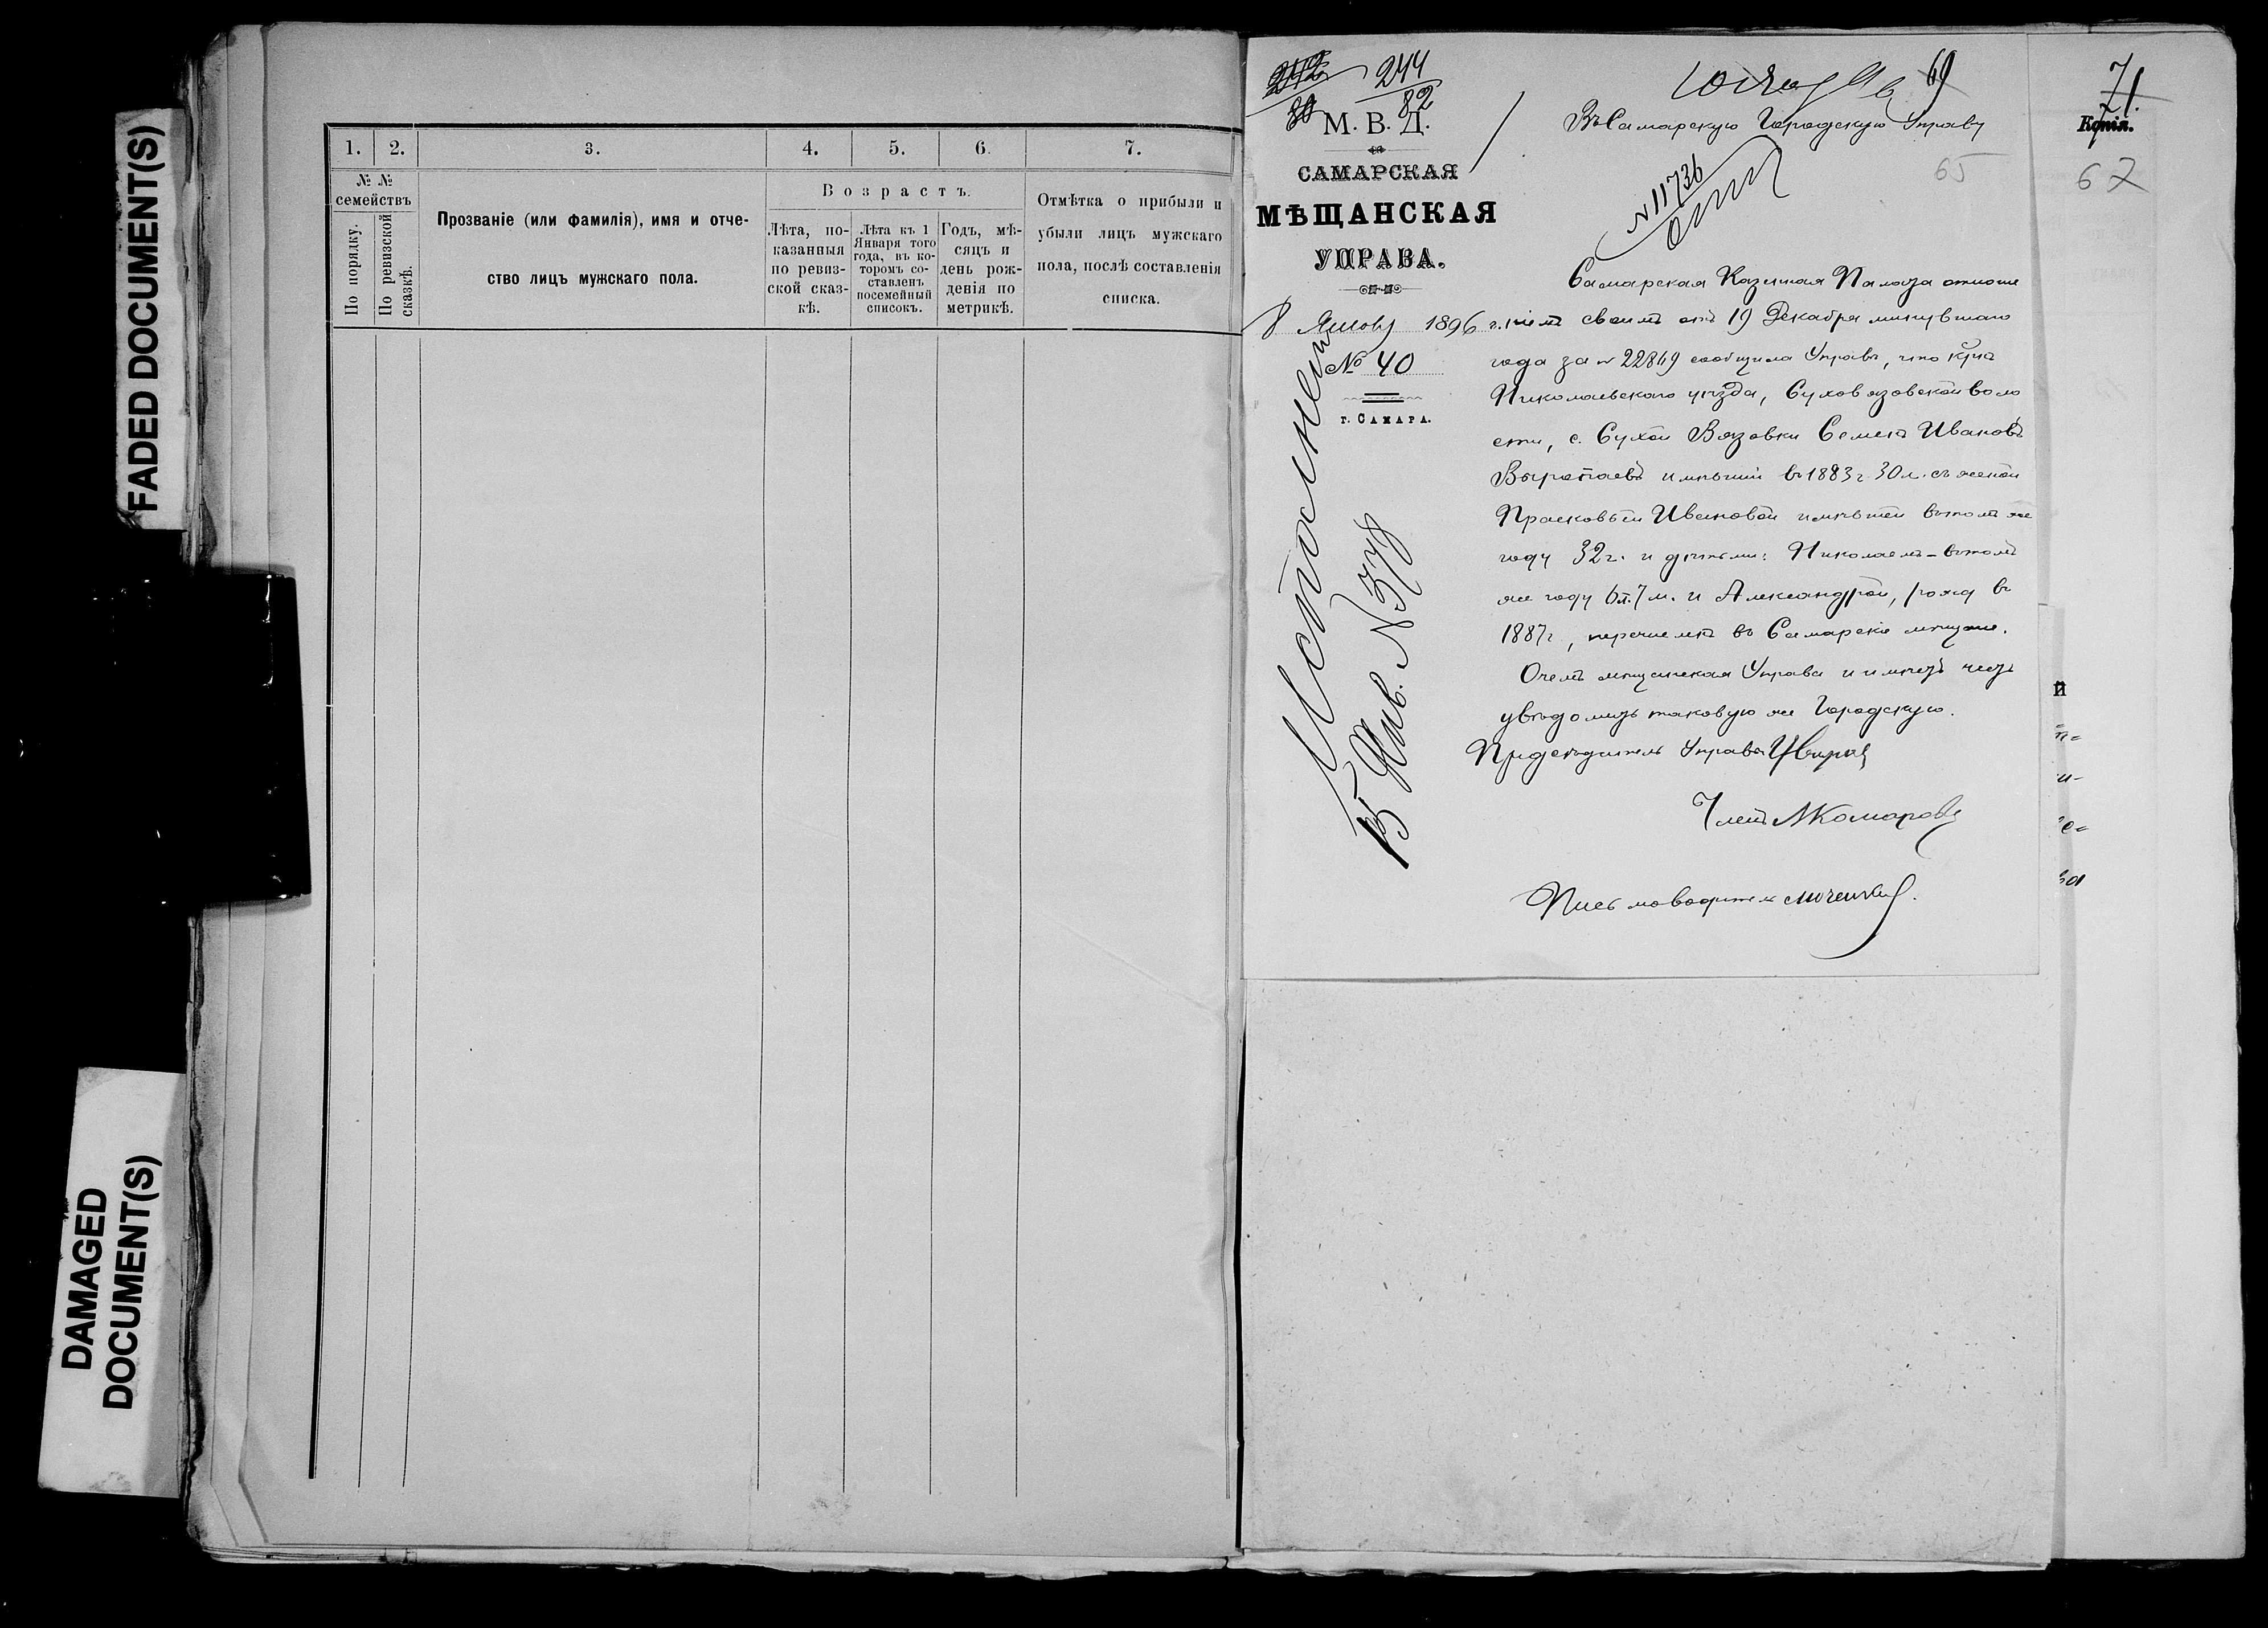 FADED DOCUMENT(S)
DAMAGED
DOCUMENT(S)
1. 2. 3. 4. 5. 6. 7.
№ №
семействъ
По порядку.
По ревизской
сказкѣ.
Прозваніе (или фамилія), имя и отче-
ство лицъ мужскаго пола.
Возрастъ.
Лѣта, по-
казанныя
по ревиз-
ской сказ-
кѣ.
Лѣта къ 1
Января того
года, въ ко-
торомъ со-
ставленъ
посемейный
списокъ.
Годъ, мѣ-
сяцъ и
день рож-
денія по
метрикѣ.
Отмѣтка о прибыли и
убыли лицъ мужскаго
пола, послѣ составленія
списка.
242
80
244
82
69
М. В. Д.
САМАРСКАЯ
МѢЩАНСКАЯ
УПРАВА.
8 Января 1896 г.
№ 40
г. САМАРА.
Въ Самарскую Городскую Управу
65
N 11736
Самарская Казенная Палата отноше
ніемъ своимъ отъ 19 Декабря минувшаго
года за N 22869 сообщила Управѣ, что кр-нъ
Николаевскаго уѣзда, Суховязовской воло
сти, с. Сухой Вязовки Семенъ Ивановъ
имѣвшій въ 1883 г. 30 л. съ женой
Прасковьей Ивановой имѣвшей въ томъ же
году 32 г. и дѣтьми: Николаемъ - въ томъ
же году 6 л. 7 м. и Александрой, рожд въ
1887 г, перечисленъ въ Самарскіе мѣщане.
О чемъ мѣщанская Управа и имѣетъ честь
увѣдомить таковую же Городскую.
Предсѣдатель Управы
Членъ А Комаровъ
Письмоводитель
Исполнено
15 Янв. N 378
71.
Копія.
67
й